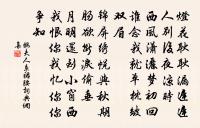 燈花耿耿漏遲遲
人別後夜涼時
西風瀟灑夢初回
誰念我就單枕皺
雙眉
錦屏綉幌與秋期
腸欲斷淚偷垂
月明還到小窗西
我恨你我憶你你
爭知
魏夫人系裙腰